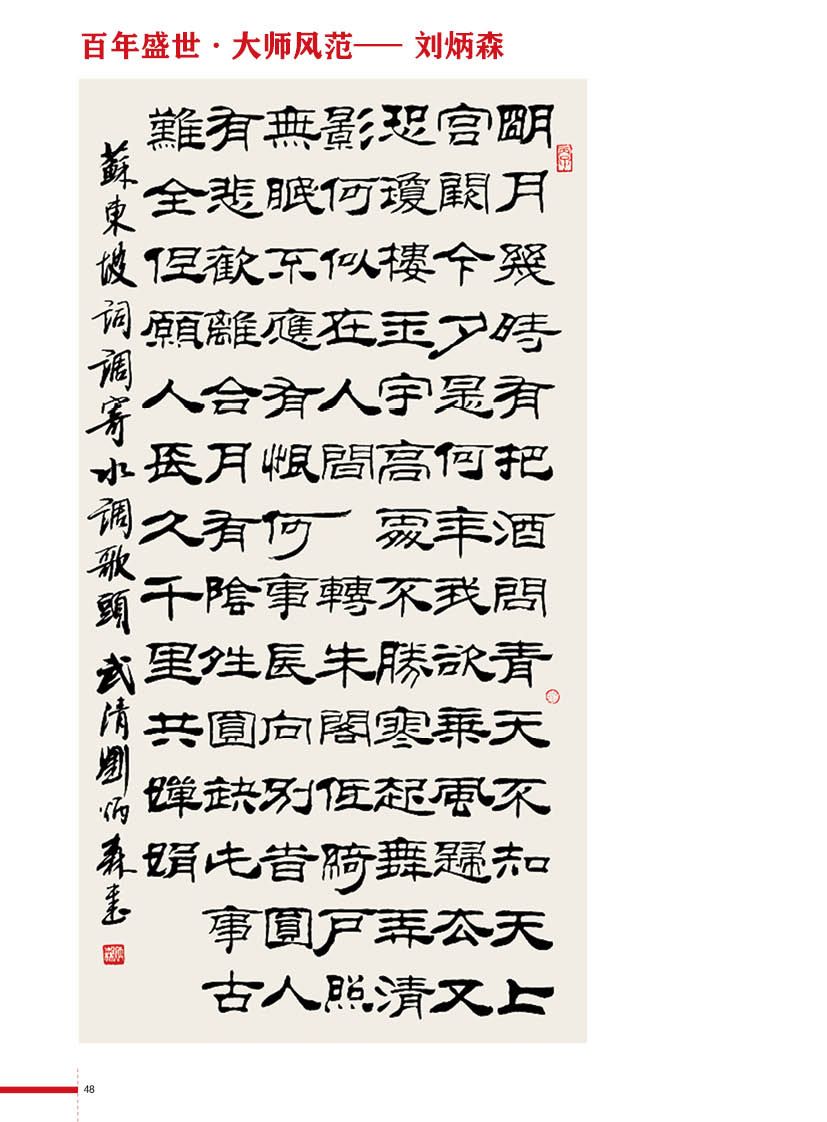 百年盛世·大师风范—— 刘炳森
明月幾時有把酒問青天不知天上
宮闕今夕是何年我欲乘風歸去又
恐瓊樓玉宇高處不勝寒起舞弄清
影何似在人間轉朱閣低綺戶照
無眠不應有恨何事長向別旹圓人
有悲歡離合月有陰晴圓缺此事古
難全但願人長久千里共嬋娟
蘇東坡詞調寄水調歌頭 武清劉炳森書
48